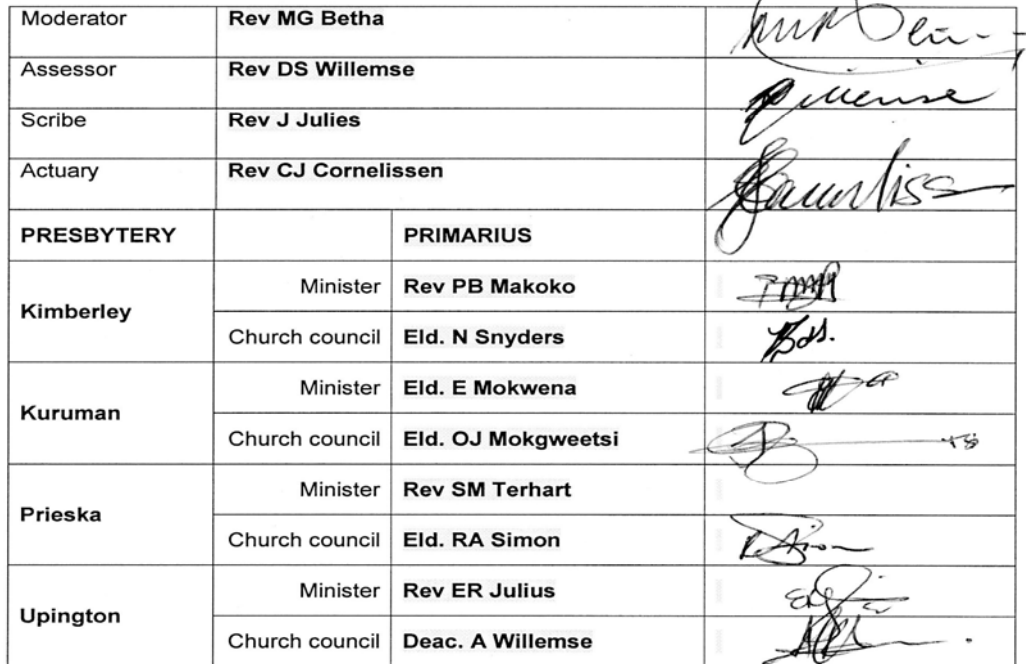 Moderator Rev MG Betha
Assessor Rev DS Willemse
Scribe Rev J Julies
Actuary Rev CJ Cornelissen
PRESBYTERY PRIMARIUS
Kimberley
Minister Rev PB Makoko
Church council Eld. N Snyders
Kuruman
Minister Eld. E Mokwena
Church council Eld. OJ Mokgweetsi
Prieska
Minister Rev SM Terhart
Church council Eld. RA Simon
Upington
Minister Rev ER Julius
Church council Deac. A Willemse